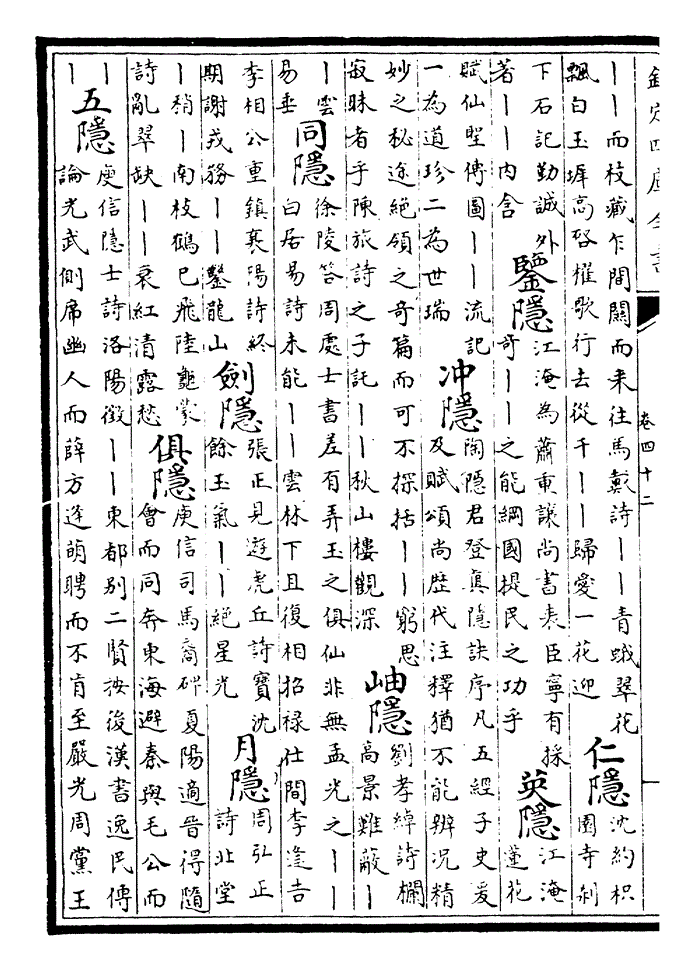 欽定四庫全書
卷四十二
｜｜而枝藏乍間關而来往馬戴詩｜｜青蛾翠花
飄白玉墀高啓櫂歌行去從千｜｜歸愛一花迎
仁隱
沈約枳
園寺刹
下石記勤誠外
著｜｜内含
鑒隱
江淹為蕭重讓尚書表臣寧有採
奇｜｜之能綱國提民之功乎
英隱
江淹
蓮花
賦仙聖傅圖｜｜流記
一為道珍二為世瑞
冲隱
陶隱君登真隱訣序凡五經子史爰
及賦頌尚歴代注釋猶不能辨况精
妙之秘途絶領之奇篇而可不探括｜｜窮思
寂昧者乎陳旅詩之子託｜｜秋山樓觀深
岫隱
劉孝綽詩欄
高景難蔽｜
｜雲
易垂
同隱
徐陵答周處士書差有弄玉之俱仙非無孟光之｜｜
白居易詩未能｜｜雲林下且復相招禄仕間李逢吉
李相公重鎮襄陽詩終
期謝戎務｜｜鑿龍山
劍隱
張正見遊虎丘詩寶沈
餘玉氣｜｜絶星光
月隱
周弘正
詩北堂
｜稍｜南枝鶴已飛陸龜蒙
詩亂翠缺｜｜衰紅清露愁
俱隱
庾信司馬裔碑夏陽適晉得隨
會而同奔東海避秦與毛公而
｜
｜
五隱
庾信隱士詩洛陽徵｜｜東都別二賢按後漢書逸民傳
論光武側席幽人而薛方逢萌聘而不肯至嚴光周黨王